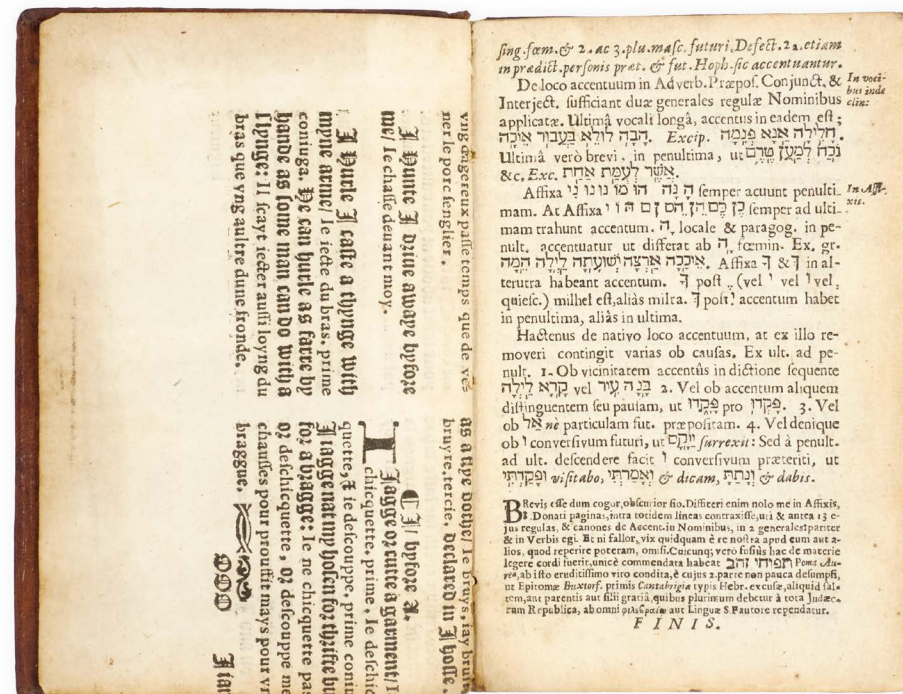 vng dāgereux passe temps que de ves
ner le porc senglier.
I Hunte I driue awaye byfore
me/ Ie chasse deuant moy.
I Hurle I caste a thynge with
myne arme/ Ie iecte du bras. prime
coniuga. He can hurle as farre by
hande as some man can do with a
slynge: Il scayt iecter aussi loyng du
bras que vng aultre dune fronde.
as a tipe dothe/ Ie bruys, iay bruit
bruyre, tercie. declared in I hosse.
¶ I/ byfore A.
I Iagge or cutte a garment/ I
chicquette, prime. Ie deschic
quette, & ie descouppe, prime coniu
I iagge nat my hosen for thrifte bu
for a bragge: Ie ne chicquette pas
or deschicquette, or descouppe me
chausses pour prouffit mays pour vn
braggue.
I iar
sing. fœm. & 2. ac 3. plu. masc. futuri. Defect. 2a. etiam
in prædict. personis præt. & fut. Hoph. sic accentuantur.
De loco accentuum in Adverb. Præpos. Conjunct. &
In voci-
bus inde
clin:
Interject. sufficiant duæ generales regulæ Nominibus
applicatæ. Ultimâ vocali longâ, accentus in eadem est;
חָלִילָה אָנָּא פְּנִמָה. Excip. הָבָה לוּלֵא בַּעֲבוּר אֵיכָה.
Ultimâ verò brevi, in penultima, ut נֹכַח לְמַעַן טֶרֶם
&c. Exc. אֲשֶׁר לְעֻמַּת אַחַת.
Affixa הָ נָה הוּ מוֹ נוּ נִי semper acuunt penulti-
In Affi-
xis.
mam. At Affixa כֶן כֶם הֶן הֶם semper ad ulti-
mam trahunt accentum. ה locale & paragog. in pe-
nult. accentuatur ut differat ab ה fœmin. Ex. gr.
אֵיכָכָה אַרְצָה יְשׁוּעָתָה לַיְלָה הֵמָּה. Affixa ך & ך in al-
terutra habeant accentum. ך post (vel י vel ו vel
quiesc.) milhel est, aliàs milra. ך post accentum habet
in penultima, aliàs in ultima.
Hactenus de nativo loco accentuum, at ex illo re-
moveri contingit varias ob causas. Ex ult. ad pe-
nult. 1. Ob vicinitatem accentûs in dictione sequente
קָרָא לָיְלָה vel בָּנָה עִיר 2. Vel ob accentum aliquem
distinguentem seu pausam, ut פָּקָדוּ pro פָּקְדוּ. 3. Vel
ob אַל nè particulam fut. præpositam. 4. Vel denique
ob ו conversivum futuri, ut וַיָּקָם surrexit: Sed à penult.
ad ult. descendere facit ו conversivum præteriti, ut
וּפָקַדְתִּי visitabo, וְאָמַרְתִּי & dicam, וְנָתַתָּ & dabis.
BRevis esse dum cogor, obscurior fio. Diffiteri enim nolo me in Affixis,
Donati paginas, intra totidem lineas contraxisse, uti & antea 13 e-
jus regulas, & canones de Accent. in Nominibus, in 2 generales: pariter
& in Verbis egi. Et ni fallor, vix quidquam è re nostra apud eum aut a-
lios, quod reperire poteram, omisi. Cuicunq; verò fusiùs hac de materie
legere cordi fuerit, unicè commendata habeat תפוחי זהב Poma Au-
rea, ab isto eruditissimo viro condita, è cujus 2. parte non pauca desumpsi,
ut Epitomæ Buxtorf. primis Cantabrigiæ typis Hebr. excusæ, aliquid sal-
tem, aut parentis aut filii gratiâ, quibus plurimum debetur à tota Judæo-
rum Republica, ab omni φιλεβραίῳ aut Linguæ S. Fautore rependatur.
FINIS.